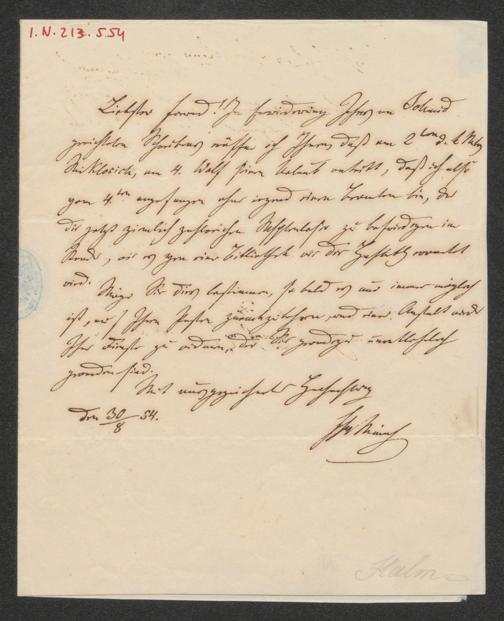 I.N. 213.554
Liebster Freund! In Erwiederung Ihres an Schmid
gerichteten Schreibens muß ich Ihnen daß am 2ten d. M.
Miklosich, am 4. Wolf seinen Urlaub antritt, daß ich also
vom 4ten angefangen ohne irgend einen Beamten bin, der
die jetzt ziemlich zahlreichen Geschäfte zu besorgen im
Stande, wie es von einer Bibliothek wie die Hofbibl. erwartet
wird. Möge Sie dies bestimmen, so bald es nur immer möglich
ist, auf Ihren Posten zurückzukehren, und der Anstalt wieder
Ihre Dienste zu widmen, die Ihr geradezu unentbehrlich
geworden sind.
Mit ausgezeichneter Hochachtung
den 30/8 54.
Münch
Halm